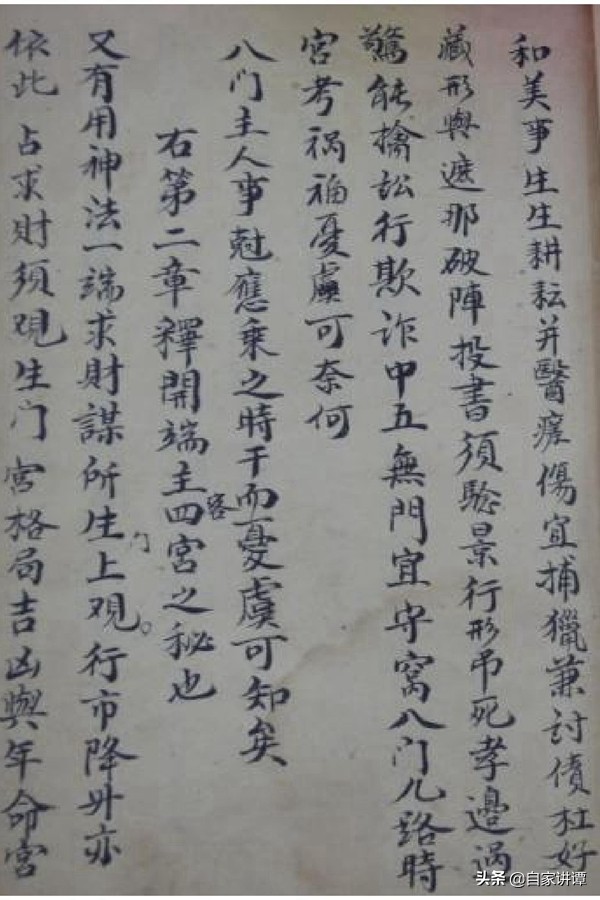 和美事生生耕耘并醫瘥傷宜捕獵兼討債杜好
藏形與遮那破陣投書須騐景行形吊死孝邉過
驚能擒訟行欺诈中五無門宜守窩八门八路時
宮考祸福憂虞可奈何
八门主人事尅應乘之時干而憂虞可知矣
右第二章釋開端主客四宮之秘也
又有用神法一端求財謀所生门上观。行市降升亦
依此 占求財須覌生门 宮格局吉凶與年命宮
头条 @自家讲谭